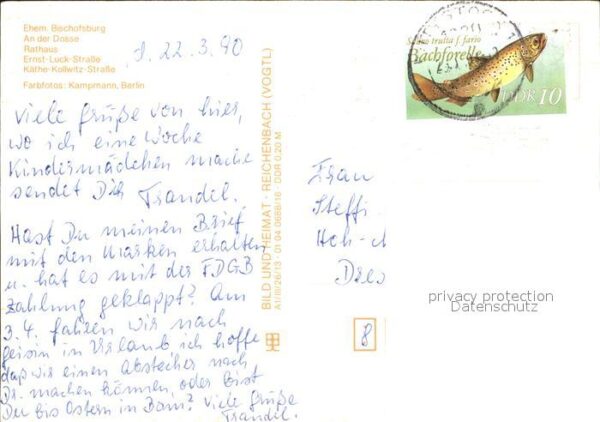 Ehem. Bischofsburg
An der Dosse
Rathaus
Ernst-Lück-Straße
Käthe-Kollwitz-Straße
Farbfotos: Kampmann, Berlin
22.3.90
Viele Grüße von hier,
wo ich eine Woche
Kindermädchen mache
sendet Dir Traudel.
Hast Du meinen Brief
mit den Marken erhalten
u. hat es mit der FDGB
Zahlung geklappt? Am
3.4. fahren wir nach
in Urlaub ich hoffe
daß wir einen Abstecher nach
Dr. machen können, oder bist
Du bis Ostern in Bom? Viele Grüße
Traudel.
BILD UND HEIMAT · REICHENBACH (VOGTL)
A1/III/26/13 01 04 0686/16 · DDR 0,20 M
Salmo trutta f. fario
Bachforelle
DDR 10
Frau
Steffi
Dres
8
privacy protection
Datenschutz